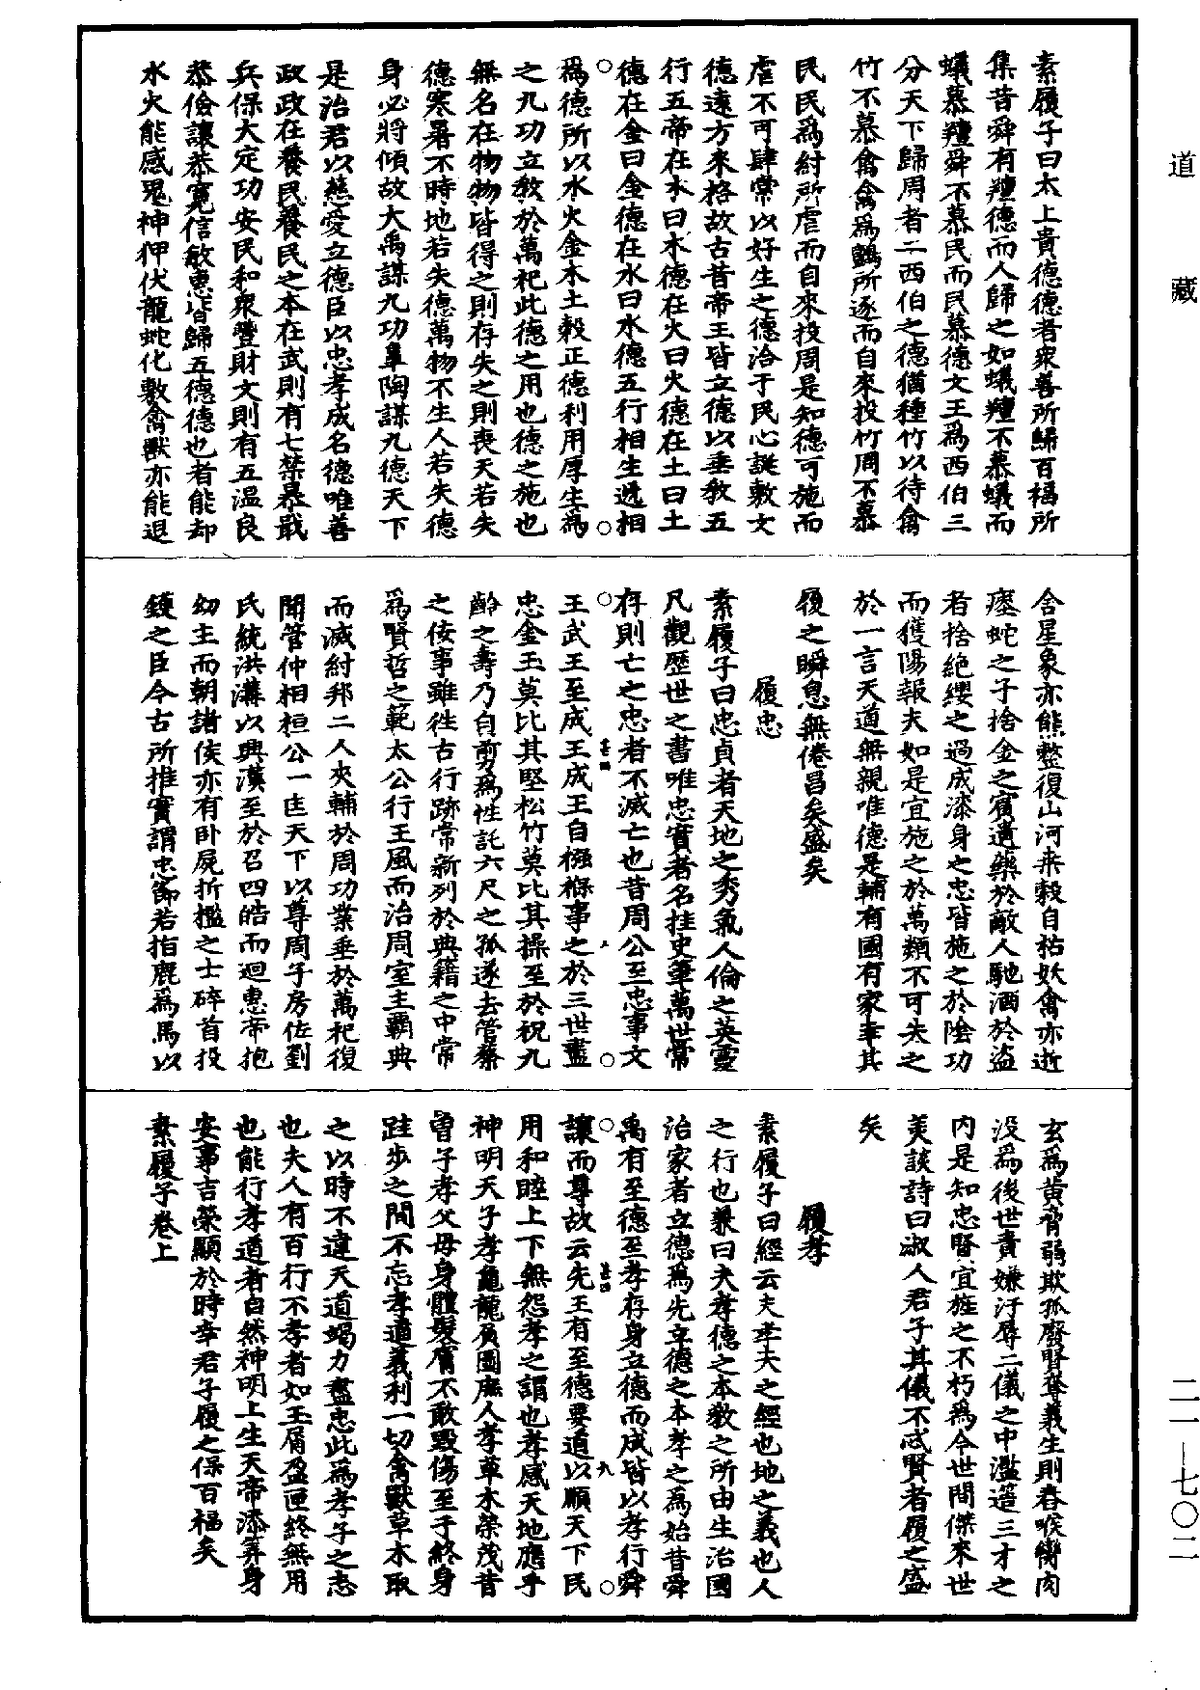 道藏
二一—七〇二
素履子曰太上貴德德者衆善所歸百福所
集昔舜有羶德而人歸之如蟻羶不慕蟻而
蟻慕羶舜不慕民而民慕德文王爲西伯三
分天下歸周者二西伯之德猶種竹以待禽
竹不慕禽禽爲鸇所逐而自來投竹周不慕
民民爲紂所虐而自來投周是知德可施而
虐不可肆常以好生之德洽于民心誕敷文
德遠方來格故古昔帝王皆立德以垂教五
行五帝在木曰木德在火曰火德在土曰土
德在金曰金德在水曰水德五行相生遞相
爲德所以水火金木土穀正德利用厚生爲
之九功立教於萬祀此德之用也德之施也
無名在物物皆得之則存失之則喪天若失
德寒暑不時地若失德萬物不生人若失德
身必將傾故大禹謀九功臯陶謀九德天下
是治君以慈愛立德臣以忠孝成名德唯善
政政在養民養民之本在武則有七禁暴戢
兵保大定功安民和衆豐財文則有五温良
恭儉讓恭寬信敏惠皆歸五德德也者能却
水火能感鬼神狎伏龍蛇化敷禽獸亦能退
舍星象亦能整復山河桒穀自枯妖禽亦逝
瘞蛇之子捨金之賓遺藥於敵人馳酒於盜
者捨絕纓之過成漆身之忠皆施之於陰功
而獲陽報夫如是宜施之於萬類不可失之
於一言天道無親唯德是輔有國有家幸其
履之瞬息無倦昌矣盛矣
履忠
素履子曰忠貞者天地之秀氣人倫之英靈
凡觀歷世之書唯忠實者名挂史筆萬世常
存則亡之忠者不滅亡也昔周公至忠事文
王武王至成王成王自襁褓事之於三世盡
忠金玉莫比其堅松竹莫比其操至於祝九
齡之壽乃自剪爲性託六尺之孤遂去管蔡
之佞事雖往古行跡常新列於典籍之中常
爲賢哲之範太公行王風而治周室主覇典
而滅紂邦二人夾輔於周功業垂於萬祀復
聞管仲相桓公一匡天下以尊周子房佐劉
氏統洪溝以興漢至於召四皓而迴惠帝抱
幼主而朝諸侯亦有卧屍折檻之士碎首投
鑊之臣今古所推實謂忠節若指鹿爲馬以
玄爲黃脅弱欺孤廢賢奪義生則舂喉臠肉
没爲後世責嫌汙辱二儀之中濫筵三才之
内是知忠賢宜旌之不朽爲今世間傑來世
美談詩曰淑人君子其儀不忒賢者履之盛
矣
履孝
素履子曰經云夫孝天之經也地之義也人
之行也兼曰夫孝德之本教之所由生治國
治家者立德爲先立德之本孝之爲始昔舜
禹有至德至孝存身立德而成皆以孝行舜
讓而尊故云先王有至德要道以順天下民
用和睦上下無怨孝之謂也孝感天地應乎
神明天子孝龜龍負圖庶人孝草木榮茂昔
曾子孝父母身體髮膚不敢毀傷至于終身
跬步之間不忘孝道義利一切禽獸草木取
之以時不違天道竭力盡忠此爲孝子之志
也夫人有百行不孝者如玉屑盈匣終無用
也能行孝道者自然神明上生天帝添筭身
安事吉榮顯於時幸君子履之保百福矣
素履子卷上